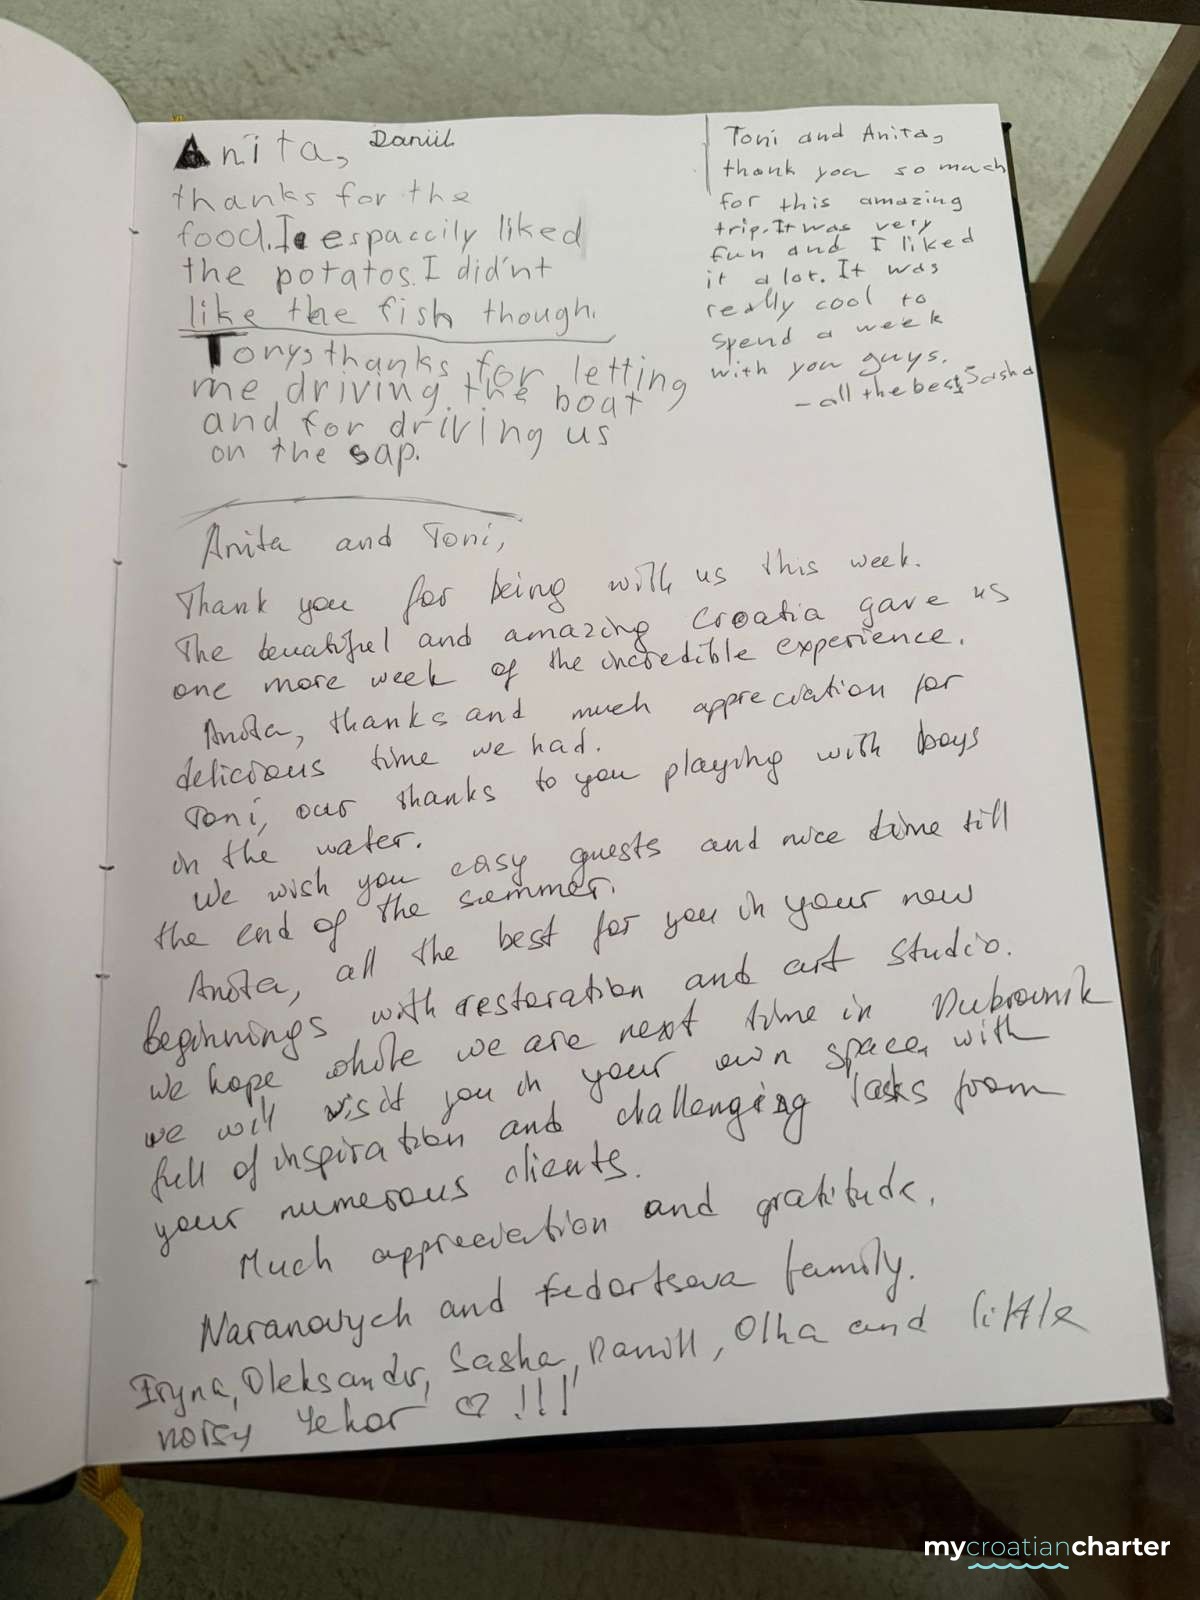 Anita, Daniil
thanks for the
food. I espaccily liked
the potatos. I did'nt
like the fish though.
Tony, thanks for letting
me driving the boat
and for driving us
on the sap.
Toni and Anita,
thank you so much
for this amazing
trip. It was very
fun and I liked
it a lot. It was
really cool to
spend a week
with you guys.
- all the best, Sasha
Anita and Toni,
Thank you for being with us this week.
The beuatiful and amazing Croatia gave us
one more week of the incredible experience.
Anita, thanks and much appreciation for
delicious time we had.
Toni, our thanks to you playing with boys
in the water.
We wish you easy guests and nice time till
the end of the summer.
Anita, all the best for you in your new
beginnings with restoration and art studio.
We hope while we are next time in Dubrovnik
we will visit you in your own space, with
full of inspiration and challenging tasks from
your numerous clients.
Much appreciation and gratitude,
Naranovych and Fedortseva family.
Iryna, Oleksandr, Sasha, Daniil, Olha and little
noisy Yehor ♡ !!!
mycroatiancharter